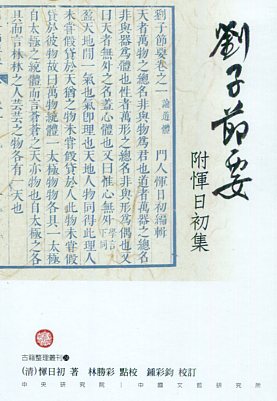 劉子節要
附惲日初集
劉子節要卷之一 論道體
門人惲日初編輯
天者萬物之總名非與物為君也道者萬器之總名
非與器為體也性者萬形之總名非與形為偶也又
曰天者無外之名蓋心體也又曰惟心無外 學言下同
盈天地間一氣也氣即理也天地人物同得此理人
未嘗假貸於天猶之物未嘗假貸於人此物未嘗假
貸於彼物故曰萬物統體一太極物物各具一太極
自太極之統體而言蒼蒼之天亦物也自太極之各
具而言林林之人芸芸之物各有一天也
古籍整理叢刊
(清)惲日初 著 林勝彩 點校 鍾彩鈞 校訂
中央研究院|中國文哲研究所